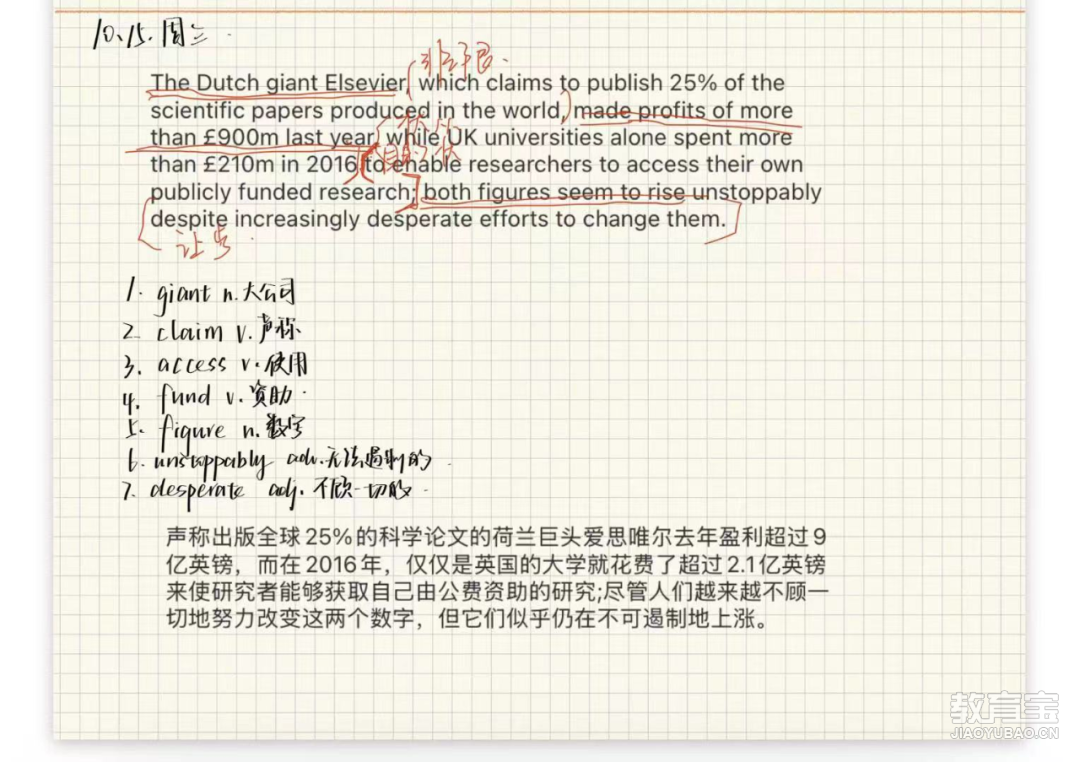 10.15.周三.
非限.
The Dutch giant Elsevier, which claims to publish 25% of the
scientific papers produced in the world, made profits of more
than £900m last year, while UK universities alone spent more
目的状
than £210m in 2016 to enable researchers to access their own
publicly funded research; both figures seem to rise unstoppably
despite increasingly desperate efforts to change them.
让步.
1. giant n.大公司
2. claim v.声称
3. access v.使用
4. fund v.资助.
5. figure n.数字
6. unstoppably adv.无法遏制的.
7. desperate adj.不顾一切的.
声称出版全球25%的科学论文的荷兰巨头爱思唯尔去年盈利超过9
亿英镑，而在2016年，仅仅是英国的大学就花费了超过2.1亿英镑
来使研究者能够获取自己由公费资助的研究;尽管人们越来越不顾一
切地努力改变这两个数字，但它们似乎仍在不可遏制地上涨。
教育宝
JIAOYUBAO.CN